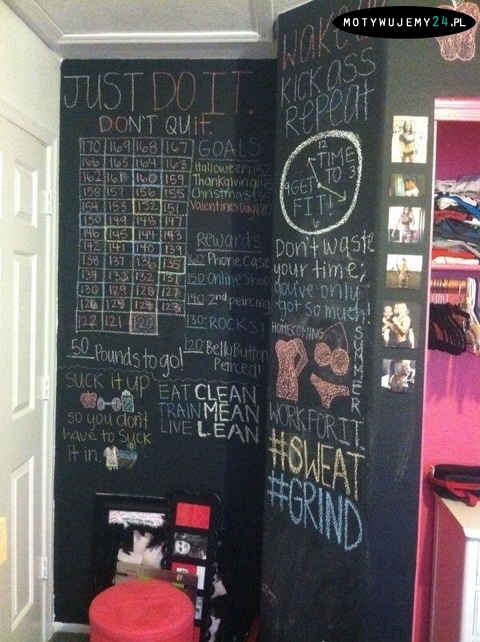 MOTYWUJEMY24.PL
JUST DO IT.
DON'T QUIT.
170 169 168 167
166 165 164 163
162 161 160 159
158 157 156 155
154 153 152 151
150 149 148 147
146 145 144 143
142 141 140 139
138 137 136 135
134 133 132 131
130 129 128 127
126 125 124 123
122 121 120
50 Pounds to go!
GOALS
Halloween 152
Thanksgiving 145
Christmas
Valentines day 120
Rewards
160 Phone case
150 Online Shop
140 2nd peircing
130 ROCKS!
120 Belly Button
Peirced!
SUCK IT UP
so you don't
have to suck
it in.
EAT CLEAN
TRAIN MEAN
LIVE LEAN
Wake
KICK ASS
REPEAT
12
TIME
TO 3
9 GET
FIT!
6
Don't waste
your time;
you've only
got so much!
HOMECOMING
SUMMER
WORK FOR IT.
#SWEAT
#GRIND